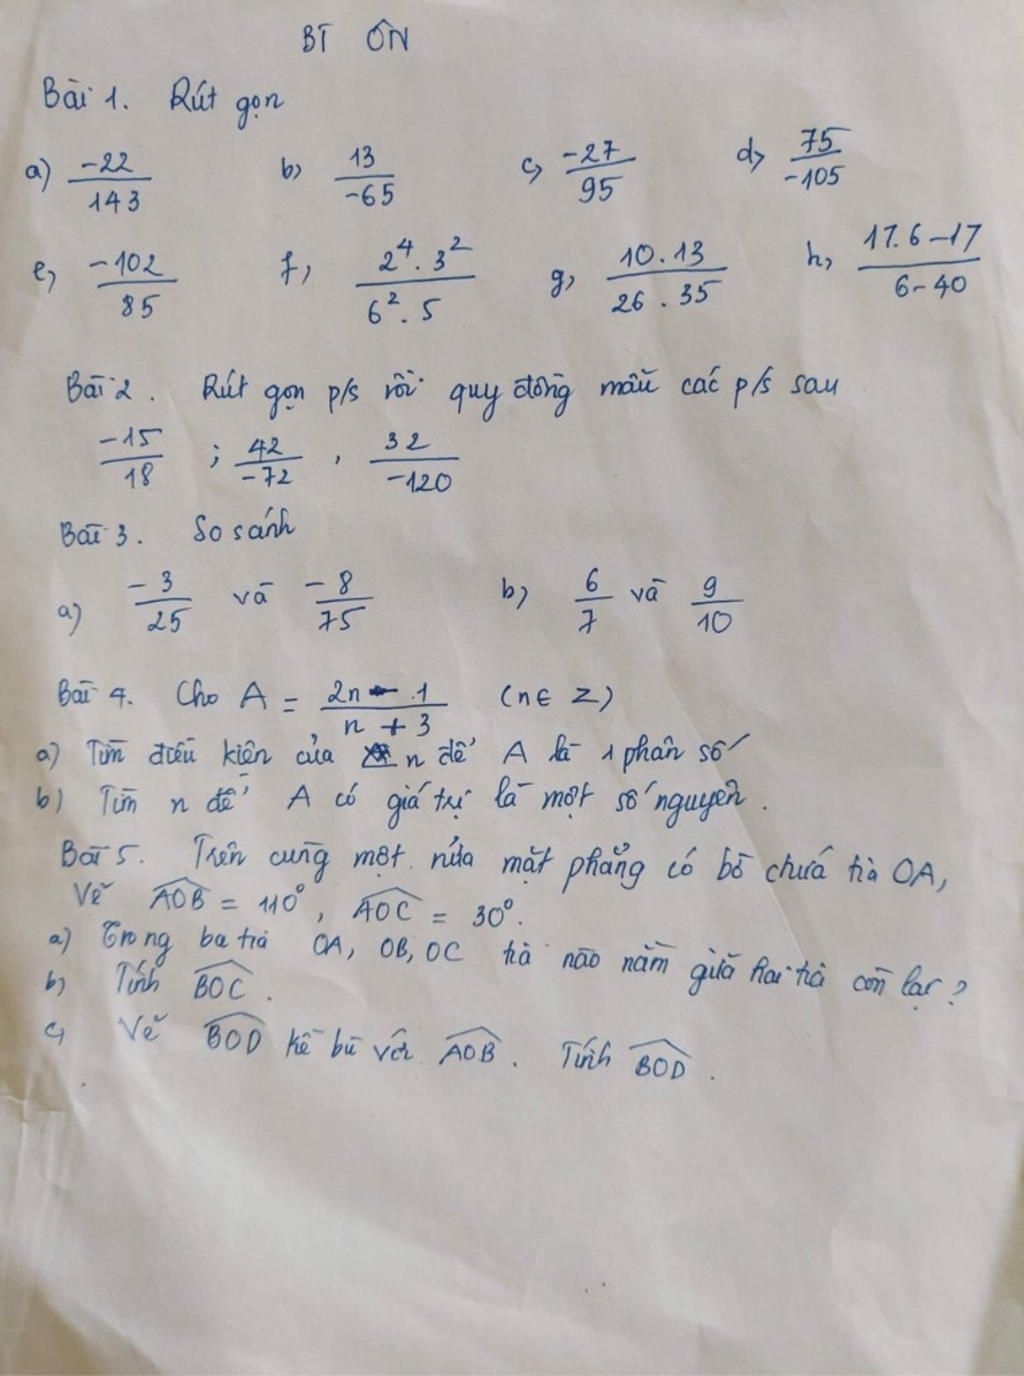 BT ÔN
Bài 1. Rút gọn
a) -22/143 b) 13/-65 c) -27/95 d) 75/-105
e) -102/85 f) 2⁴.3²/6².5 g) 10.13/26.35 h) 17.6-17/6-40
Bài 2. Rút gọn p/s rồi quy đồng mẫu các p/s sau
-15/18 ; 42/-72 , 32/-120
Bài 3. So sánh
a) -3/25 và -8/75 b) 6/7 và 9/10
Bài 4. Cho A = 2n - 1/n + 3 (n ∈ Z)
a) Tìm điều kiên của n để A là 1 phân số
b) Tìm n để A có giá trị là một số nguyên.
Bài 5. Trên cùng một nửa mặt phẳng có bờ chứa tia OA,
Vẽ AOB = 110°, AOC = 30°.
a) Trong ba tia OA, OB, OC tia nào nằm giữa hai tia còn lại ?
b) Tính BOC.
c) Vẽ BOD kề bù với AOB. Tính BOD.